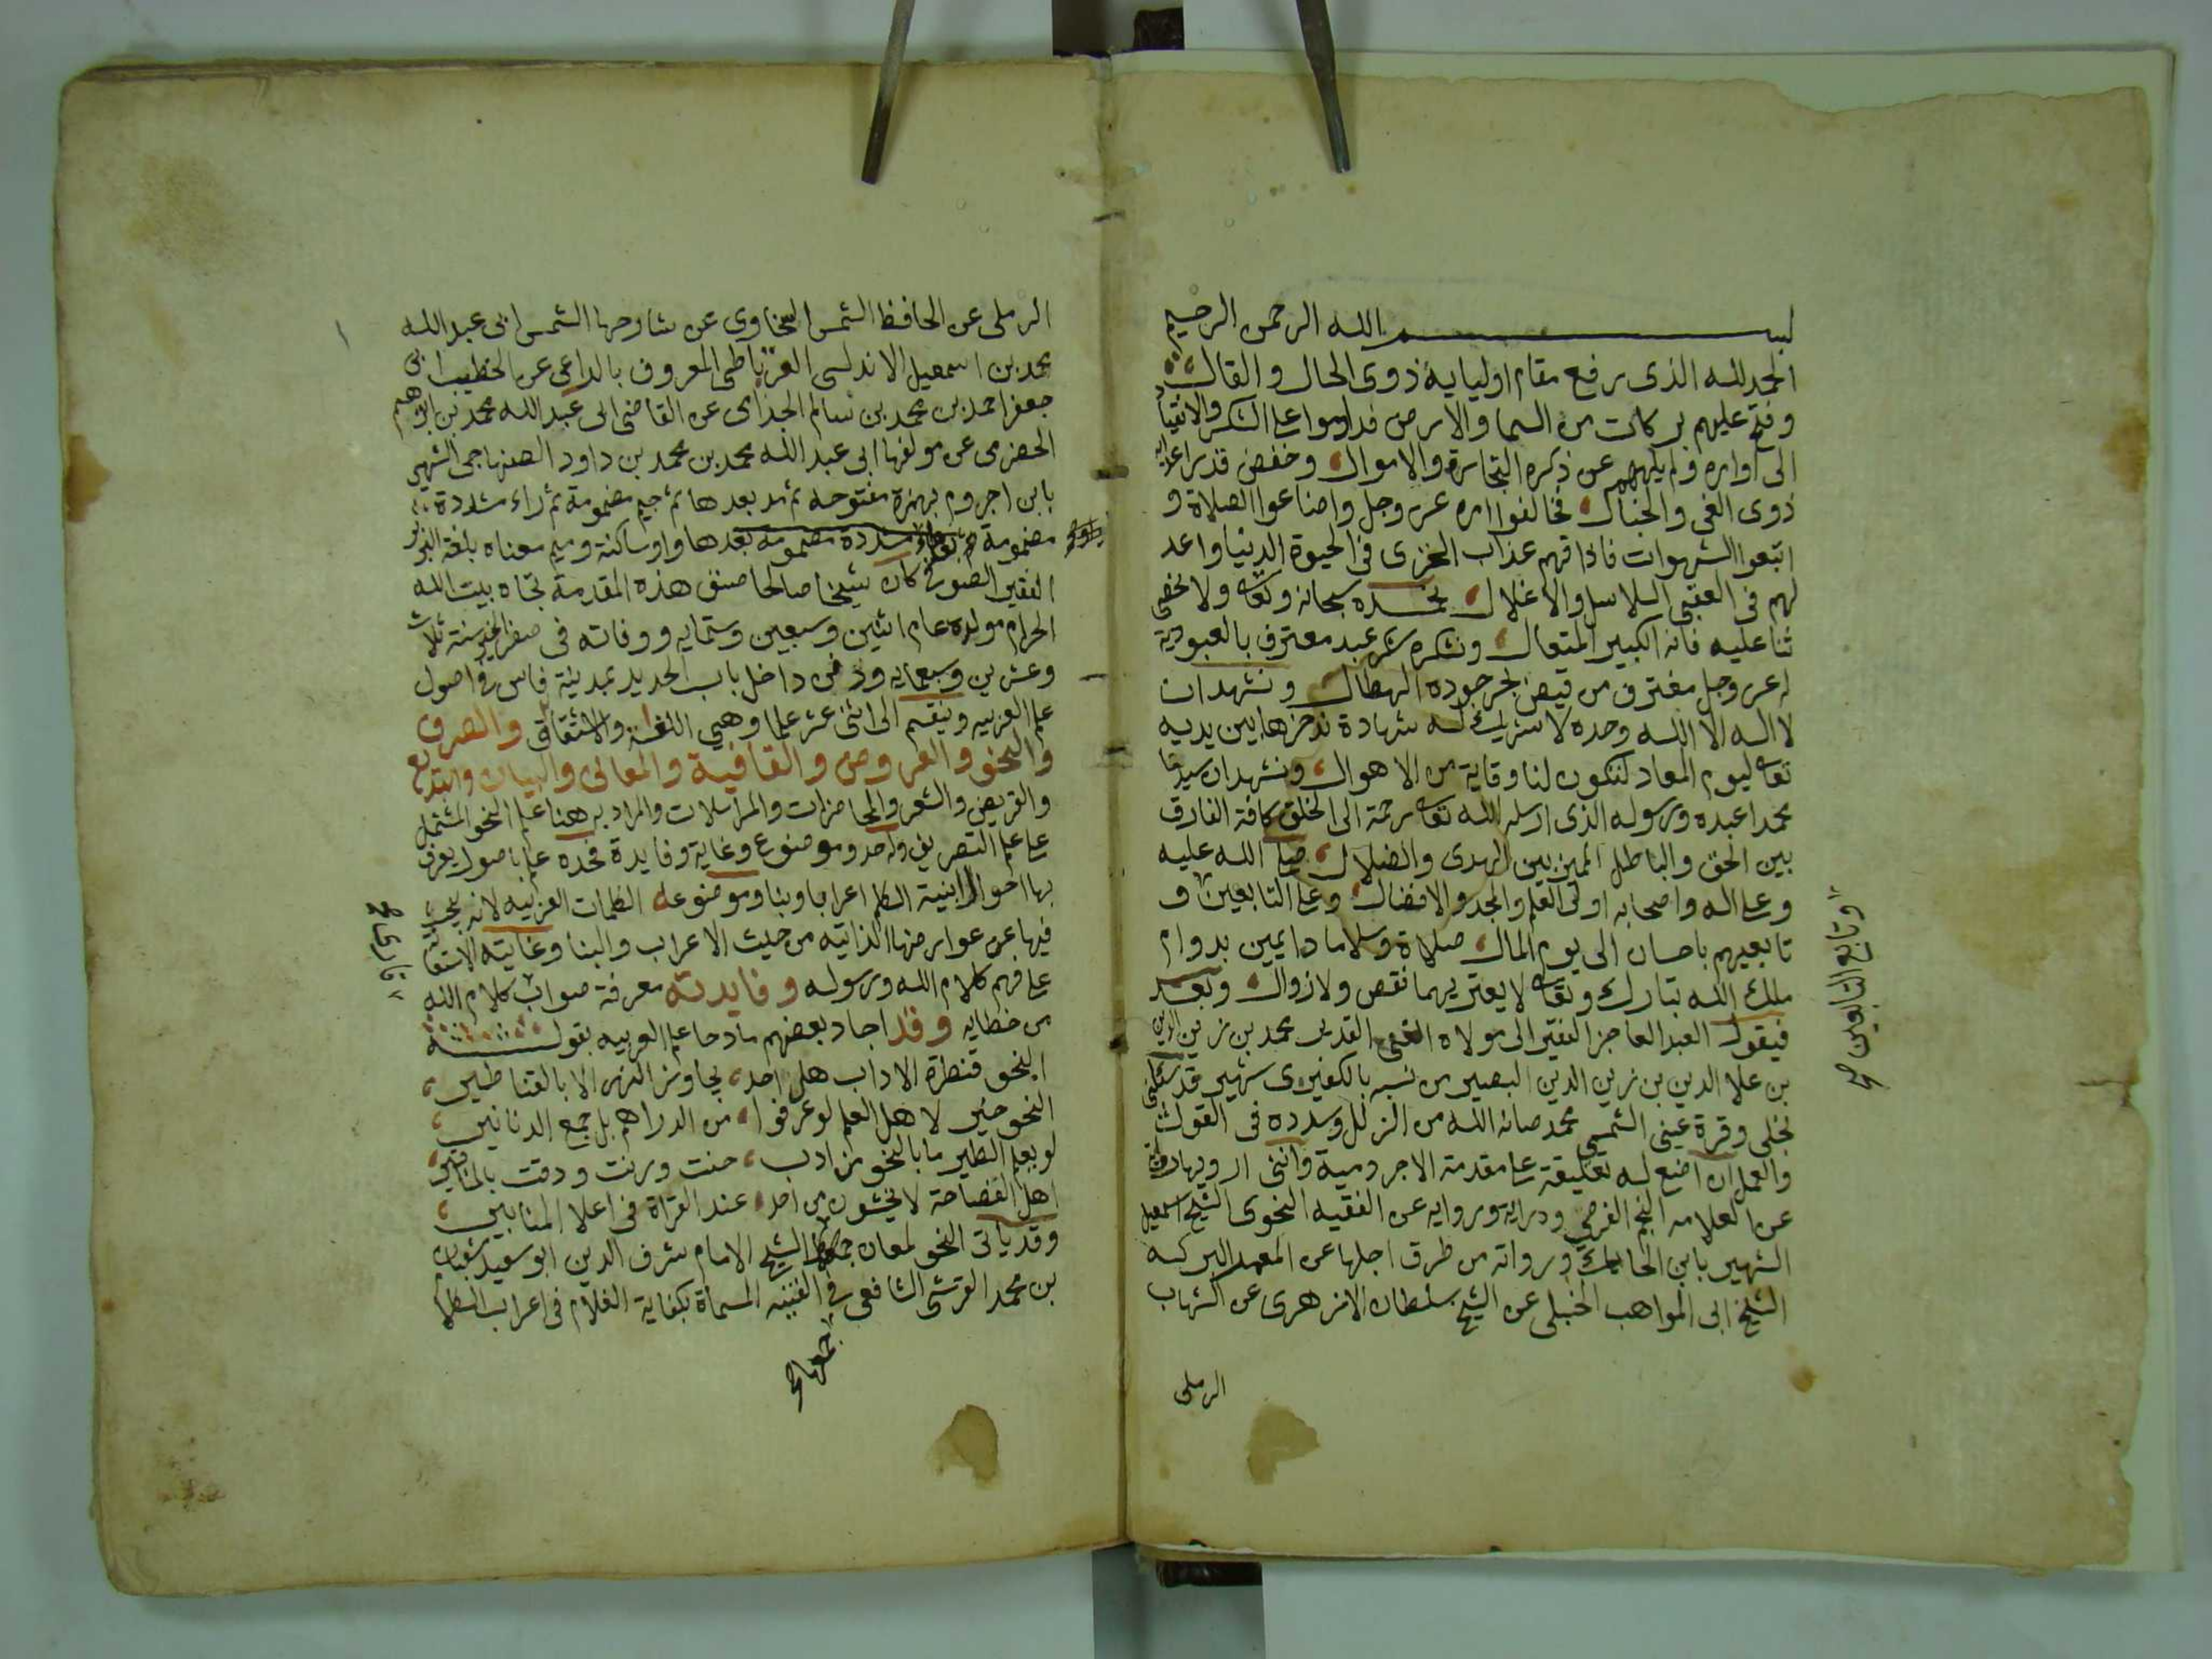 بسم الله الرحمن الرحيم
الحمد لله الذى رفع مقام اوليايه ذوى الحال والقال
وفتح عليهم بركات من السما والارض فداوموا على الشكر والانقياد
الى اوامره ولم يلههم عن ذكره التجارة والاموال وخفض قدر اعدايه
ذوى الغى والخبال فخالفوا امره عز وجل واضاعوا الصلاة و
اتبعوا الشهوات فاذاقهم عذاب الخزى فى الحيوة الدنيا واعد
لهم فى العقبى السلاسل والاغلال نحمده سبحانه وتعالى ولا نحصى
ثنا عليه فانه الكبير المتعال ونشكره شكر عبد معترف بالعبودية
له عز وجل مغترف من فيض بحر جوده الهطال ونشهد ان
لا اله الا الله وحده لا شريك له شهادة ندخرها بين يديه
تعالى ليوم المعاد لتكون لنا وقاية من الاهوال ونشهد ان سيدنا
محمدا عبده ورسوله الذى ارسله الله تعالى رحمة الى الخلق كافة الفارق
بين الحق والباطل المميز بين الهدى والضلال صلى الله عليه
وعلى اله واصحابه اولى العلم والمجد والافضال وعلى التابعين و
تابعيهم باحسان الى يوم المال صلاة وسلاما دايمين بدوام
ملك الله تبارك وتعالى لا يعتريهما نقص ولا زوال وبعد
فيقول العبد العاجز الفقير الى مولاه الغنى القدير محمد بن زين الدين
بن علا الدين بن زين الدين البصير من نسبه بالكفيرى شهير قد سئلنى
نجلى وقرة عينى الشمسى محمد صانه الله من الزلل وسدده فى القول
والعمل ان اضع له تعليقة على مقدمة الاجرومية واننى ارويها
عن العلامه النجم الفرضى دراية ورواية عن الفقيه النحوى الشيخ اسمعيل
الشهير بابن الحايك ورواته من طرق اجلها عن المعمر البركه
الشيخ ابى المواهب الحنبلى عن الشيخ سلطان الازهرى عن الشهاب
الرملى
وتابع التابعين صح
الرملى عن الحافظ الشمس السخاوى عن شارحها الشمس ابى عبد الله
محمد بن اسمعيل الاندلسى الغرناطى المعروف بالراعى عن الخطيب ابى
جعفر احمد بن محمد بن سالم الجذامى عن القاضى ابى عبد الله محمد بن ابراهيم
الحضرمى عن مولفها ابى عبد الله محمد بن محمد بن داود الصنهاجى الشهير
بابن اجروم بهمزة مفتوحة ثم مد بعدها ثم جيم مضمومة ثم راء مشددة
مضمومة بعدها واو ساكنة وميم معناه بلغة البربر
الفقير الصوفى كان شيخا صالحا صنف هذه المقدمة تجاه بيت الله
الحرام مولده عام اثنين وسبعين وستمايه ووفاته فى صفر الخير سنة ثلاث
وعشرين وسبعمايه ودفن داخل باب الحديد بمدينة فاس واصول
علم العربيه وينقسم الى اثنى عشر علما وهى اللغة والاشتقاق والصرف
والنحو والعروض والقافية والمعانى والبيان والبديع
والقريض والشعر والمحاضرات والمراسلات والمراد به هنا علم النحو المشتمل
على علم التصريف وله حد وموضوع وغاية وفايدة فحده علم باصول يعرف
بها احوال ابنية الكلم اعرابا وبنا وموضوعه الكلمات العربيه لانه يبحث
فيها عن عوارضها الذاتيه من حيث الاعراب والبنا وغايته الاستعانة
على فهم كلام الله ورسوله وفايدته معرفة صواب كلام الله
من خطايه وقد اجاد بعضهم مادحا علم العربيه بقوله
النحو قنطرة الاداب هل احد، يجاوز النهر الا بالقناطير،
النحو خير لاهل العلم لو عرفوا، من الدراهم بل جمع الدنانير،
لو يعلم الطير ما بالنحو من ادب، حنت ورنت ودقت بالمناقير،
اهل الفصاحة لا يخشون من احد، عند القراة فى اعلا المنابير،
وقد ياتى النحو لمعان الشيخ الامام شرف الدين ابو سعيد شعبان
بن محمد القرشى الشافعى فى الفيته المسماة بكفاية الغلام فى اعراب الكلام
جمعها صح